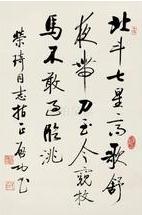 北斗七星高歌舒
夜帶刀至今窺牧
馬不敢過臨洮
榮琦同志指正 启功